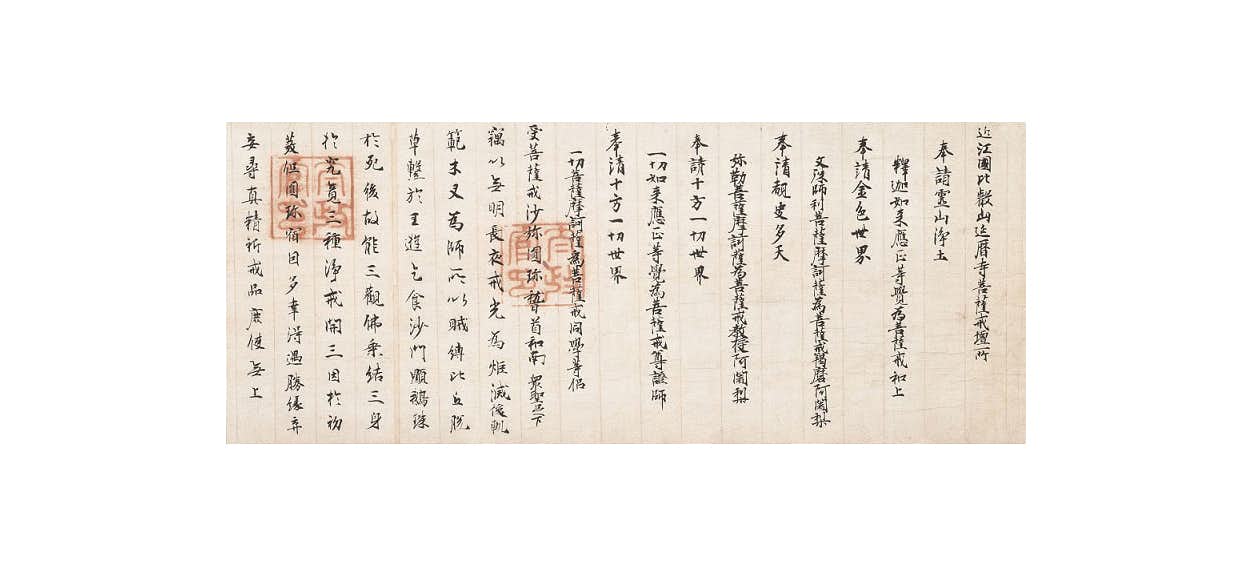 近江國比叡山延暦寺菩薩戒壇所
奉請靈山淨土
釋迦如来應正等覺為菩薩戒和上
奉請金色世界
文殊師利菩薩摩訶薩為菩薩戒羯磨阿闍梨
奉請覩史多天
弥勒菩薩摩訶薩為菩薩戒教授阿闍梨
奉請十方一切世界
一切如来應正等覺為菩薩戒尊證師
奉請十方一切世界
一切菩薩摩訶薩為菩薩戒同學等侶
受菩薩戒沙弥圓珎稽首和南 衆聖足下
竊以無明長夜戒光為炬滅後軌
範木叉為師所以賊縛比丘脱
草繫於王遊乞食沙門顯鵝珠
於死後故能三觀佛乗結三身
於究竟三種淨戒開三因於初
發但圓珎宿因多幸淂遇勝縁弃
妄尋真精祈戒品庶使無上
太政官印
太政官印